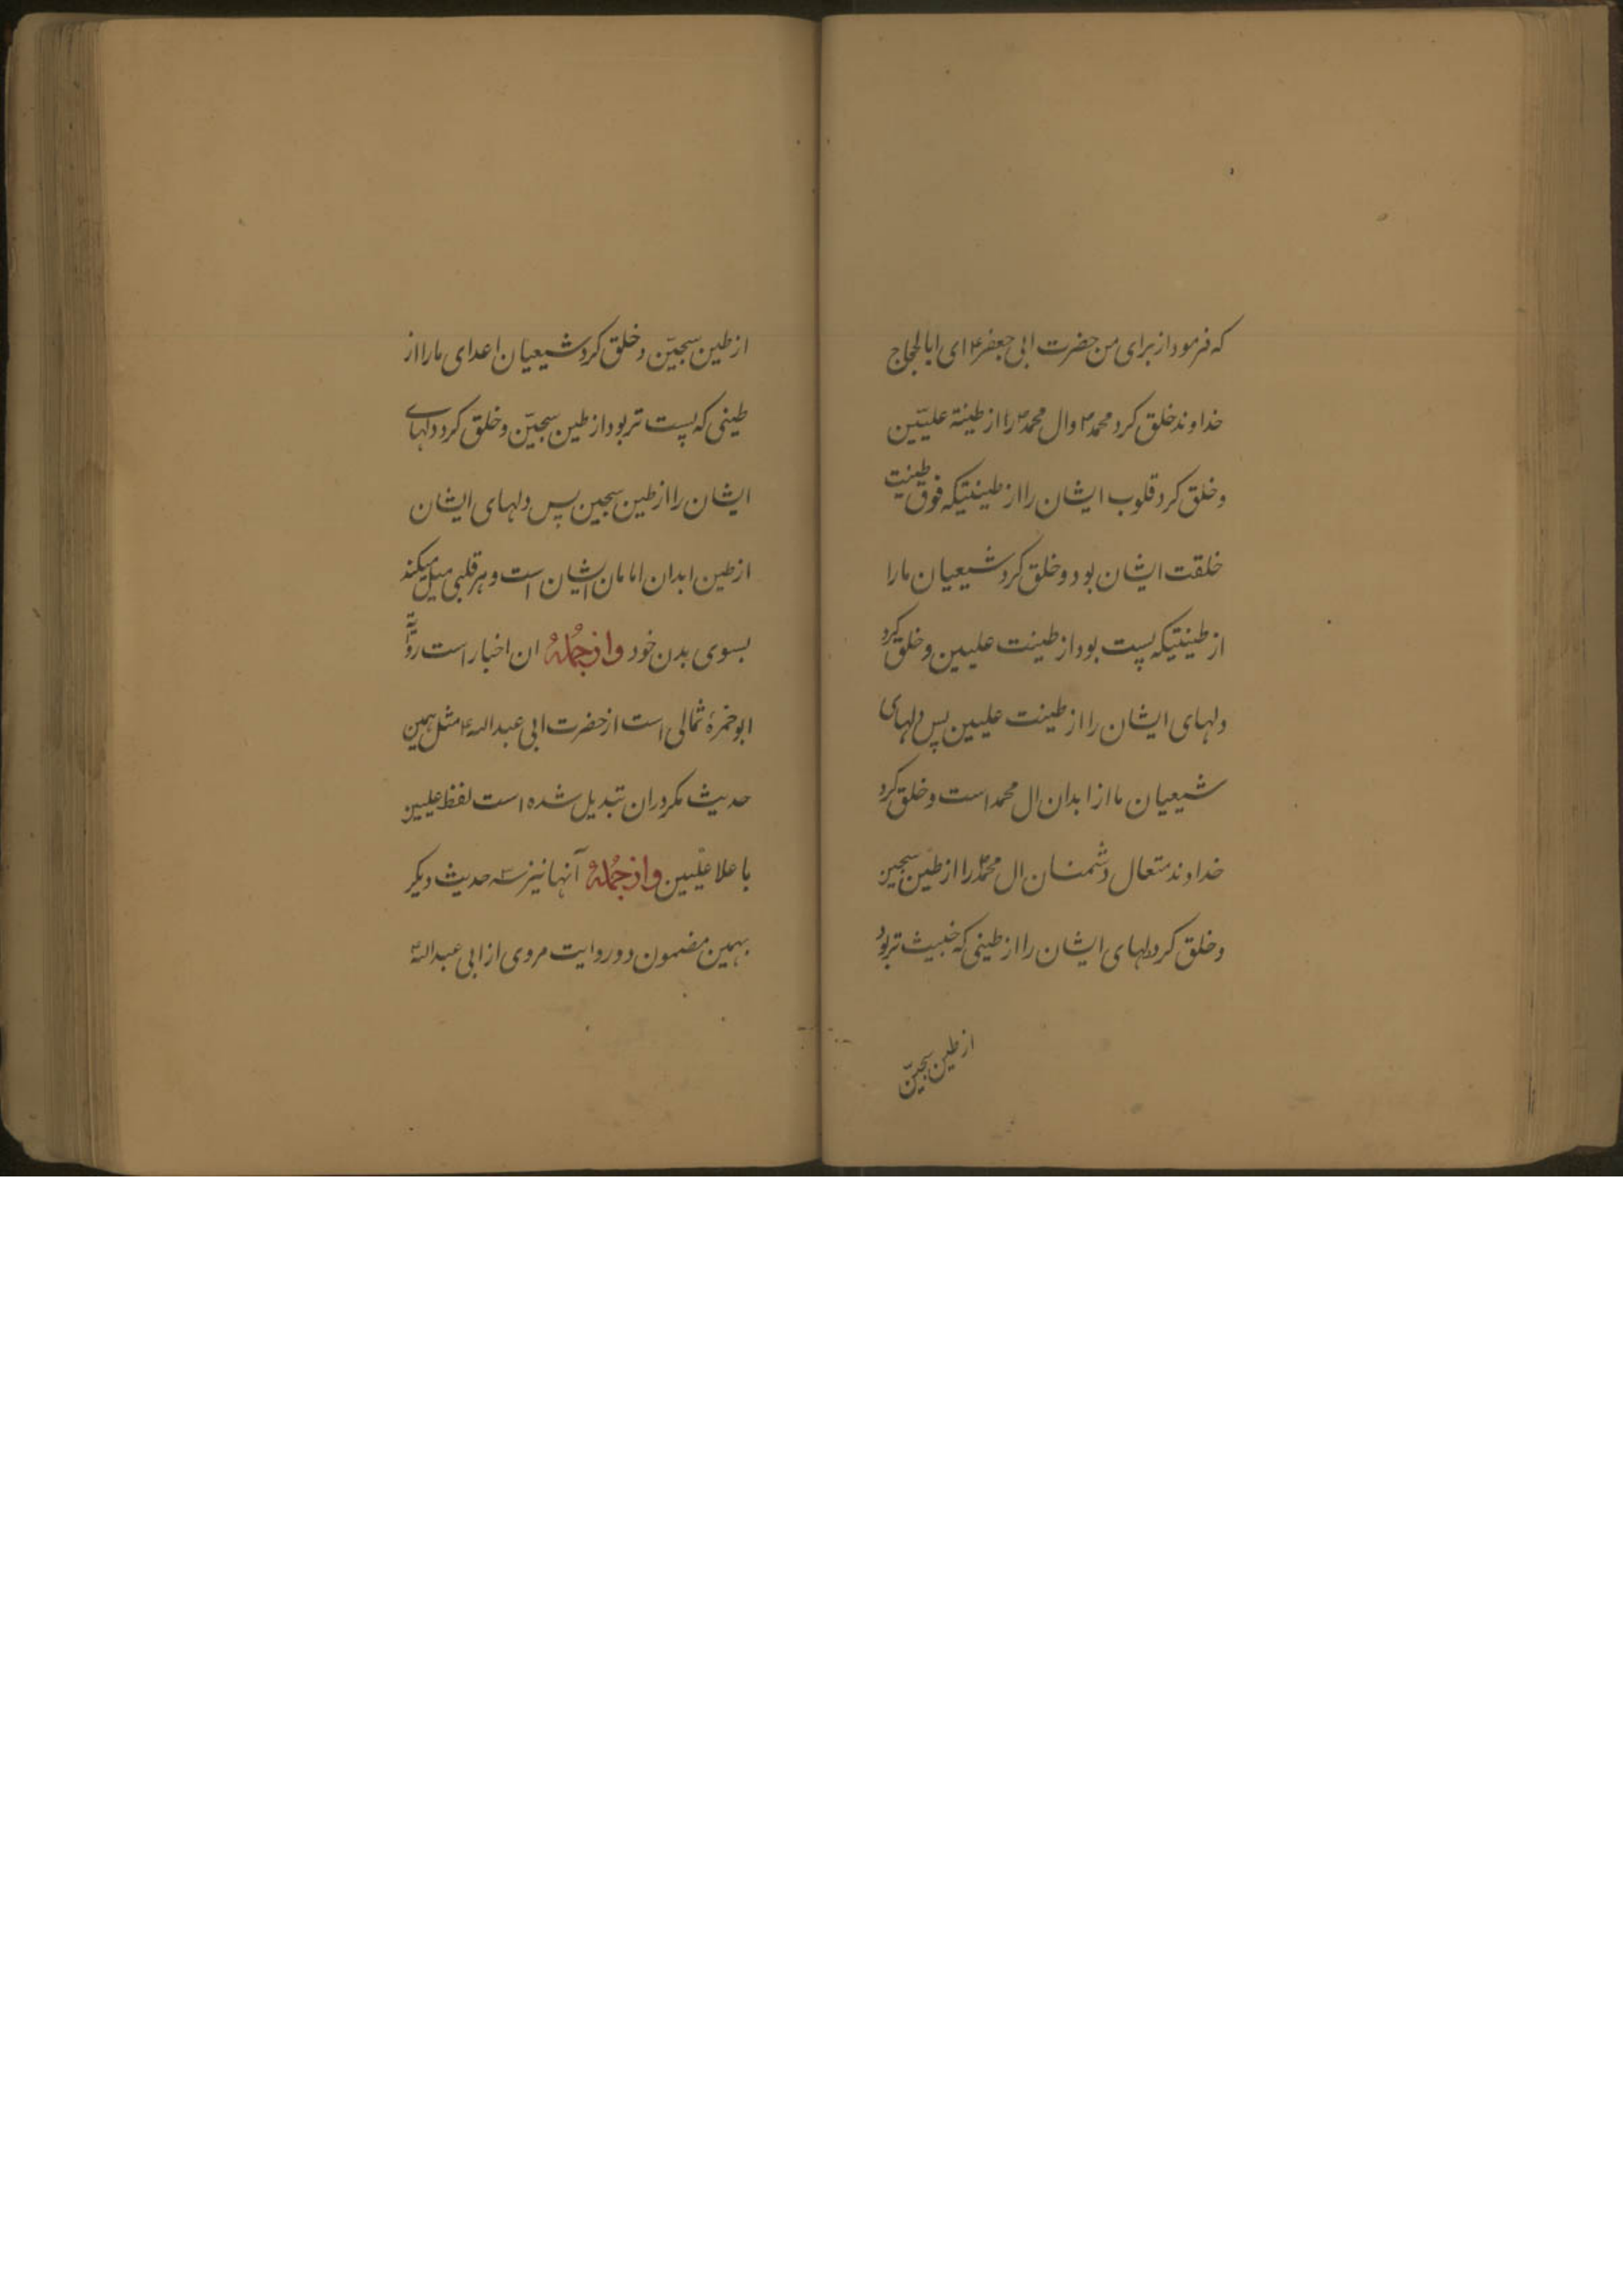 که فرمود از برای من حضرت ابی جعفر ع ای ابا لحجاج
خداوند خلق کرد محمد ص وال محمد ص را از طینة علیّین
و خلق کرد قلوب ایشان را از طینتیکه فوق طینت
خلقت ایشان بود و خلق کرد شیعیان ما را
از طینتیکه پست بود از طینت علیین و خلق کرد
دلهای ایشان را از طینت علیین پس دلهای
شیعیان ما از ابدان ال محمد است و خلق کرد
خداوند متعال دشمنان ال محمد ص را از طین سجین
و خلق کرد دلهای ایشان را از طینی که خبیث تر بود
از طین سجیّن
از طین سجیّن و خلق کرد شیعیان اعدای ما را از
طینی که پست تر بود از طین سجیّن و خلق کرد دلهای
ایشان را از طین سجین پس دلهای ایشان
از طین ابدان امامان ایشان است و هر قلبی میل میکند
بسوی بدن خود وازجُملهُ ان اخبار است روایة
ابو حمزهٔ ثمالی است از حضرت ابی عبدالله ع مثل همین
حدیث مکر در ان تبدیل شده است لفظ علیین
با علا علیّین وازجُملهُ آنها نیز سه حدیث دیکر
بهمین مضمون دو روایت مروی از ابی عبدالله ع